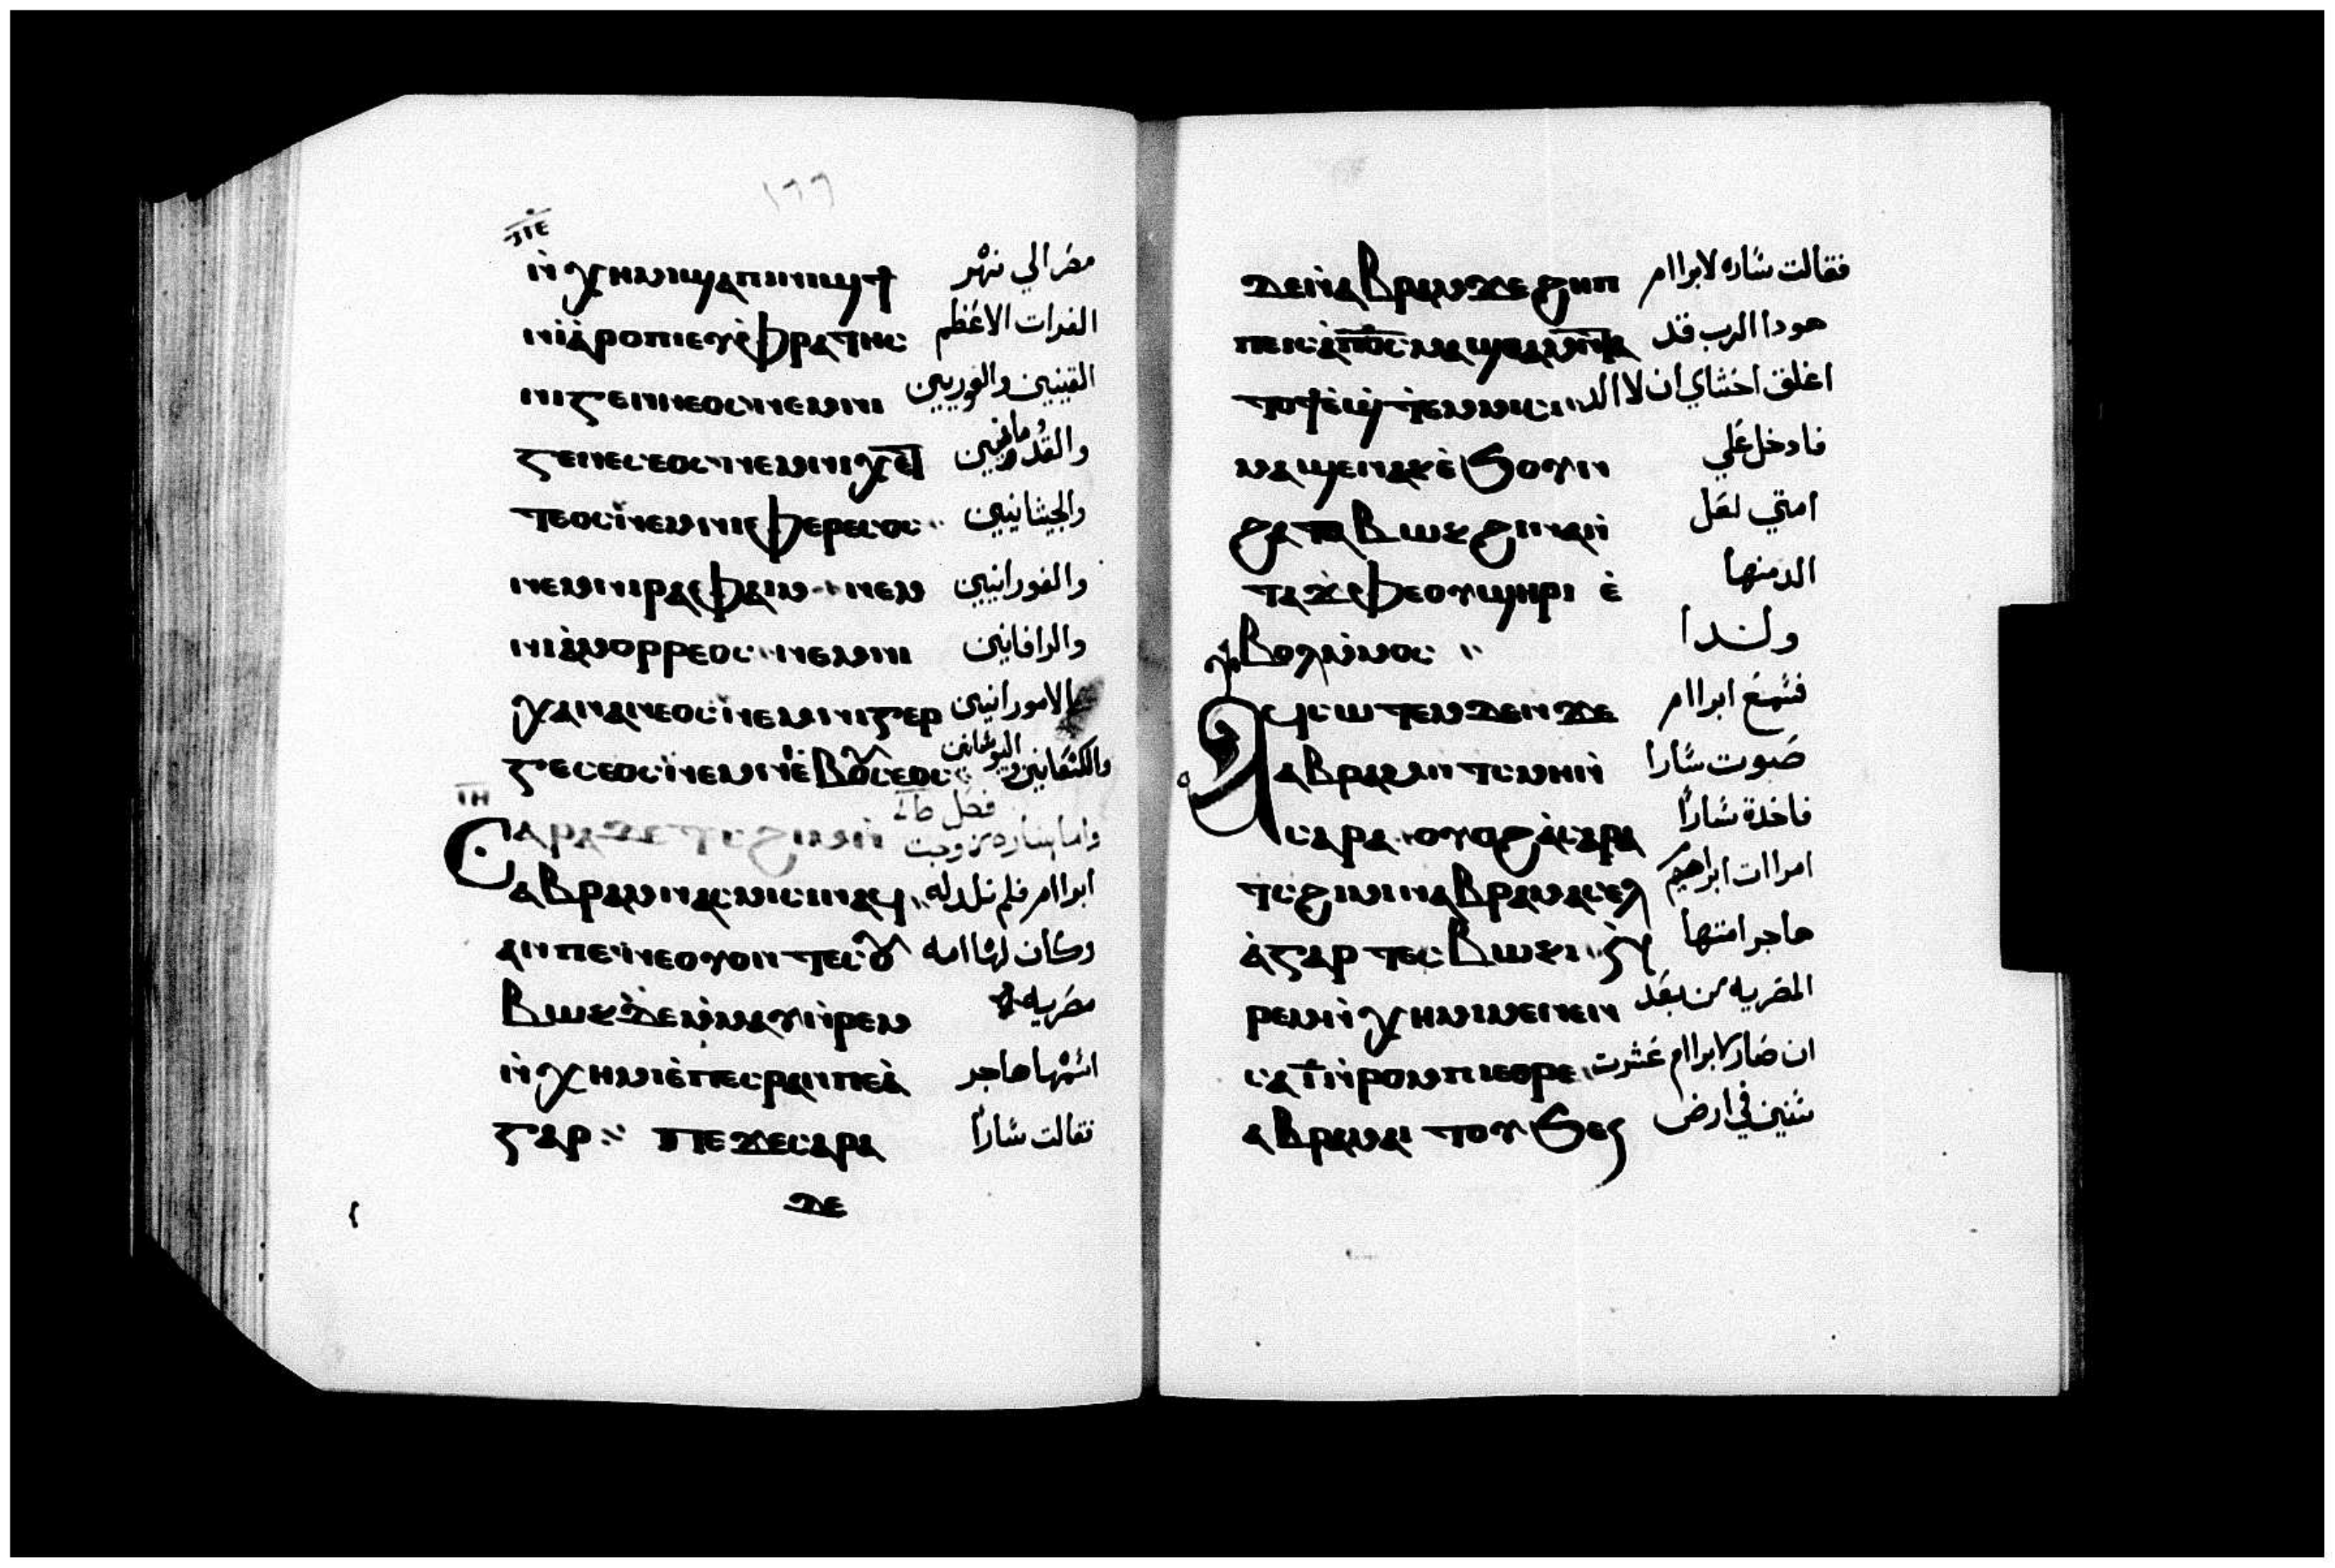 ١٦٦
ⲛ̀ⲭⲏⲙⲓϣⲁⲡⲓⲛⲓϣϯ مصر الي نهر
ⲛⲓⲁ̀ⲣⲟⲡⲓⲉⲩⲫⲣⲁⲧⲏⲥ الفرات الاعظم
ⲛⲓⲅⲉⲛⲛⲉⲟⲥⲛⲉⲙⲛⲓ القينيين
ⲅⲉⲛⲉⲥⲉⲟⲥⲛⲉⲙⲛⲓⲭⲉ
ⲧⲉⲟⲥⲛⲉⲙⲛⲓⲫⲉⲣⲉⲥⲟⲥ والجيثانيين
ⲛⲉⲙⲛⲓⲣⲁⲫⲁⲓⲛ ⲛⲉⲙ والفورانيين
ⲛⲓⲁ̀ⲙⲟⲣⲣⲉⲟⲥ ⲛⲉⲙⲛⲓ والرافانيين
ⲭⲁⲛⲁⲛⲉⲟⲥⲛⲉⲙⲛⲓⲅⲉⲣ والامورانيين
ⲅⲉⲥⲉⲟⲥⲛⲉⲙⲛⲓⲉⲃⲟⲩⲥⲉⲟⲥ والكنعانيين
ⲓⲏ فصل
ⲥⲁⲣⲁⲇⲉ ⲧⲥϩⲓⲙⲓⲛ̀ واما ساره زوجت
ⲁⲃⲣⲁⲙⲛⲁⲥⲙⲓⲥⲓⲛⲁϥ ابراام فلم تلد له
ⲁⲛⲡⲉ ⲛⲉⲟⲩⲟⲛ ⲧⲉⲥⲟⲩ وكان لها امه
ⲃⲱⲕⲓ ⲙ̀ⲙⲁⲩⲛ̀ⲣⲉⲙ مصريه
ⲛ̀ⲭⲏⲙⲓⲉ̀ⲡⲉⲥⲣⲁⲛⲡⲉⲁ̀ اسمها هاجر
ⲅⲁⲣ ⲡⲉϫⲉⲥⲁⲣⲁ فقالت سارا
ⲇⲉ
ⲇⲉⲛ̀ⲁⲃⲣⲁⲙϫⲉϩⲏⲡ فقالت ساره لابراام
ⲡⲉⲓⲥⲁ̀ⲡⲟ̅ⲥ̅ⲙⲁϣⲑⲁⲙⲛ̀ⲧⲁ هوذا الرب قد
ⲧⲟϯⲉ̀ϣⲧⲉⲙⲙⲓⲥⲓ اغلق احشاي ان لا الد
ⲙⲁϣⲉⲛⲁⲕⲉ̀ϧⲟⲩⲛ فادخل علي
ϩⲁⲧⲁⲃⲱⲕϩⲓⲛⲁⲛ̀ امتي لعل
ⲧⲁϫⲫⲉⲟⲩϣⲏⲣⲓ ⲉ̀ الد منها
ⲃⲟⲗⲙ̀ⲙⲟⲥ ولدا
ⲁϥⲥⲱⲧⲉⲙⲇⲉⲛϫⲉ فسمع ابراام
ⲁⲃⲣⲁⲙⲛ ⲧⲥⲙⲏⲛ̀ صوت سارا
ⲥⲁⲣⲁ ⲟⲩⲟϩⲁ̀ⲥⲁⲣⲁ فاخدة سارا
ⲧⲥϩⲓⲙⲓⲛⲁⲃⲣⲁⲙⲁⲥⲉⲗ امراات ابراهيم
ⲁ̀ⲅⲁⲣ ⲧⲉⲥⲃⲱⲕⲓ هاجر امتها
ⲣⲉⲙⲛ̀ⲭⲏⲙⲓⲙⲉⲛⲉⲛ المصريه من بعد
ⲥⲁⲓ̅ⲛ̀ⲣⲟⲙⲡⲓⲉⲑⲣⲉ ان صار لابراام عشرت
ⲁⲃⲣⲁⲙ سنين في ارض